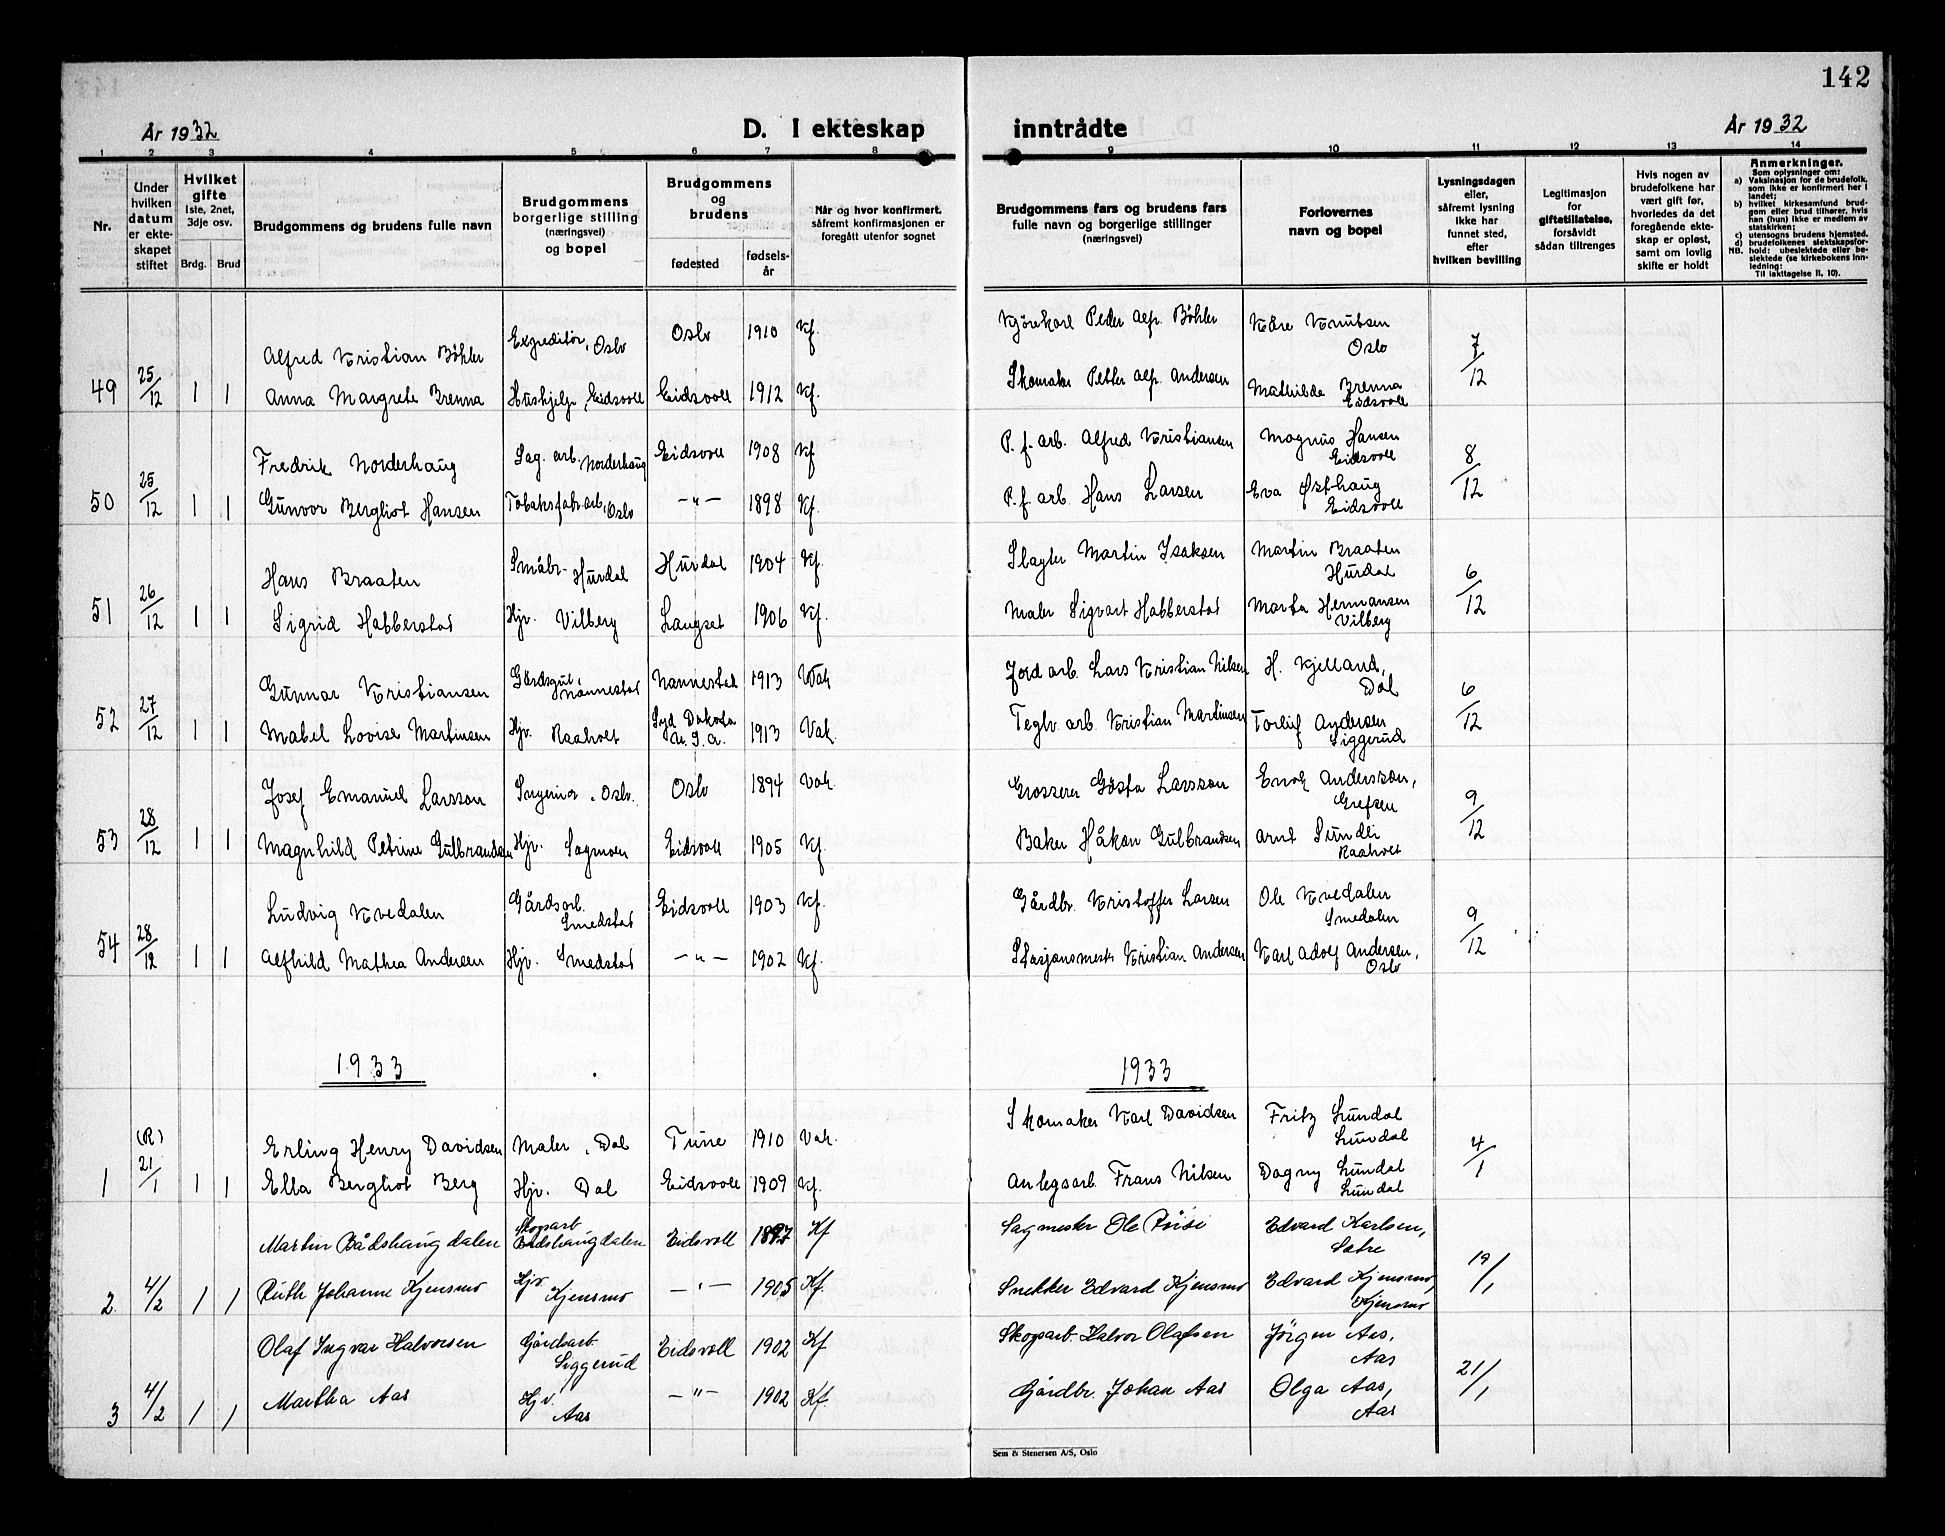 142
År 1932
D. I ekteskap inntrådte
År 1932
1 2 3 4 5 6 7 8 9 10 11 12 13 14
Nr.
Under hvilken datum er ekteskapet stiftet
Hvilket gifte
Iste, 2net, 3dje osv.
Brdg. Brud
Brudgommens og brudens fulle navn
Brudgommens borgerlige stilling (næringsvei) og bopel
Brudgommens og brudens
fødested
fødselsår
Når og hvor konfirmert, såfremt konfirmasjonen er foregått utenfor sognet
Brudgommens fars og brudens fars fulle navn og borgerlige stillinger (næringsvei)
Forlovernes navn og bopel
Lysningsdagen eller, såfremt lysning ikke har funnet sted, efter hvilken bevilling
Legitimasjon for giftetillatelse, forsåvidt sådan tiltrenges
Hvis nogen av brudefolkene har vært gift før, hvorledes da det foregående ekteskap er opløst, samt om lovlig skifte er holdt
Anmerkninger.
Som oplysninger om:
a) Vaksinasjon for de brudefolk, som ikke er konfirmert her i landet;
b) hvilket kirkesamfund brudgom eller brud tilhører, hvis han (hun) ikke er medlem av statskirken;
c) utensogns brudens hjemsted.
d) brudefolkenes slektskapsforhold: ubeslektede eller beslektede (se kirkebokens innledning:
NB. Til iakttagelse II, 10).
Alfred Kristian Böhler Expeditör, Oslo Oslo 1910 Kf. Kjörekarl Peder Alf. Böhler Kåre Knutsen Oslo
49 25/12 1 1 Anna Margrete Brenna Hushjelp, Eidsvoll Eidsvoll 1912 Kf. Skomaker Petter Alf. Andersen Mathilde Brenna Eidsvoll 7/12
Fredrik Norderhaug Sag. arb. Norderhaug Eidsvoll 1908 Kf P. f. arb. Alfred Kristiansen Magnus Hansen Eidsvoll
50 25/12 1 1 Gunvor Bergliot Hansen Tobaksfabr.arb., Oslo —"— 1898 Kf. P. f. arb. Hans Larsen Eva Østhaug Eidsvoll 8/12
Hans Braaten Småbr. Hurdal Hurdal 1904 Kf. Slagter Martin Isaksen Martin Braaten Hurdal
51 26/12 1 1 Sigrid Habberstad Hjv. Vilberg Langset 1906 Kf. Maler Sigvart Habberstad Marta Hermansen Vilberg 6/12
Gunnar Kristiansen Gårdsgut, Nannestad Nannestad 1913 Vak Jord arb. Lars Kristian Nilsen H. Kjelland, Dal
52 27/12 1 1 Mabel Lovise Martinsen Hjv. Raaholt Syd Dakota U. S. A. 1913 Vak. Teglv. arb. Kristian Martinsen Torleif Andersen Siggerud 6/12
Josef Emanuel Larsson Ingeniør, Oslo. Oslo 1894 Vak. Grosserer Gösta Larsson Enok Andersson, Grefsen
53 28/12 1 1 Magnhild Petrine Gulbrandsen Hjv. Sagmoen Eidsvoll 1905 Kf. Baker Håkon Gulbrandsen Arnt Sundli Raaholt 9/12
Ludvig Kvedalen Gårdsarb. Smedstad Eidsvoll 1903 Kf. Gårdbr. Kristoffer Larsen Ole Kvedalen Smedalen
54 28/12 1 1 Alfhild Mathea Andersen Hjv. Smedstad —"— 1902 Kf. Stasjonsmestr Kristian Andersen Karl Adolf Andersen, Oslo 9/12
1933 1933
(R) Erling Henry Davidsen Maler, Dal Tune 1910 Vak. Skomaker Karl Davidsen Fritz Lundal Lundal
1 21/1 1 1 Ella Bergliot Berg Hjv. Dal Eidsvoll 1909 Kf. Anlegsarb. Frans Nilsen Dagny Lundal Lundal 4/1
Martin Bådshaugdalen Skogsarb Bådshaugdalen Eidsvoll 1897 Kf Sagmester Ole Ole Edvard Karlsen, Sætre
2. 4/2 1 1 Ruth Johanne Kjensmo Hjv. Kjensmo —"— 1905 Kf. Snekker Edvard Kjensmo Edvard Kjensmo, Kjensmo 19/1
Olaf Ingvar Halvorsen Gårdsarb. Siggerud Eidsvoll 1902 Kf Skogsarb. Halvor Olafsen Jörgen Aas, Aas
3 4/2 1 1 Martha Aas Hjv. Aas —"— 1902 Kf. Gårdbr. Johan Aas Olga Aas, Aas 21/1
Sem & Stenersen A/S, Oslo